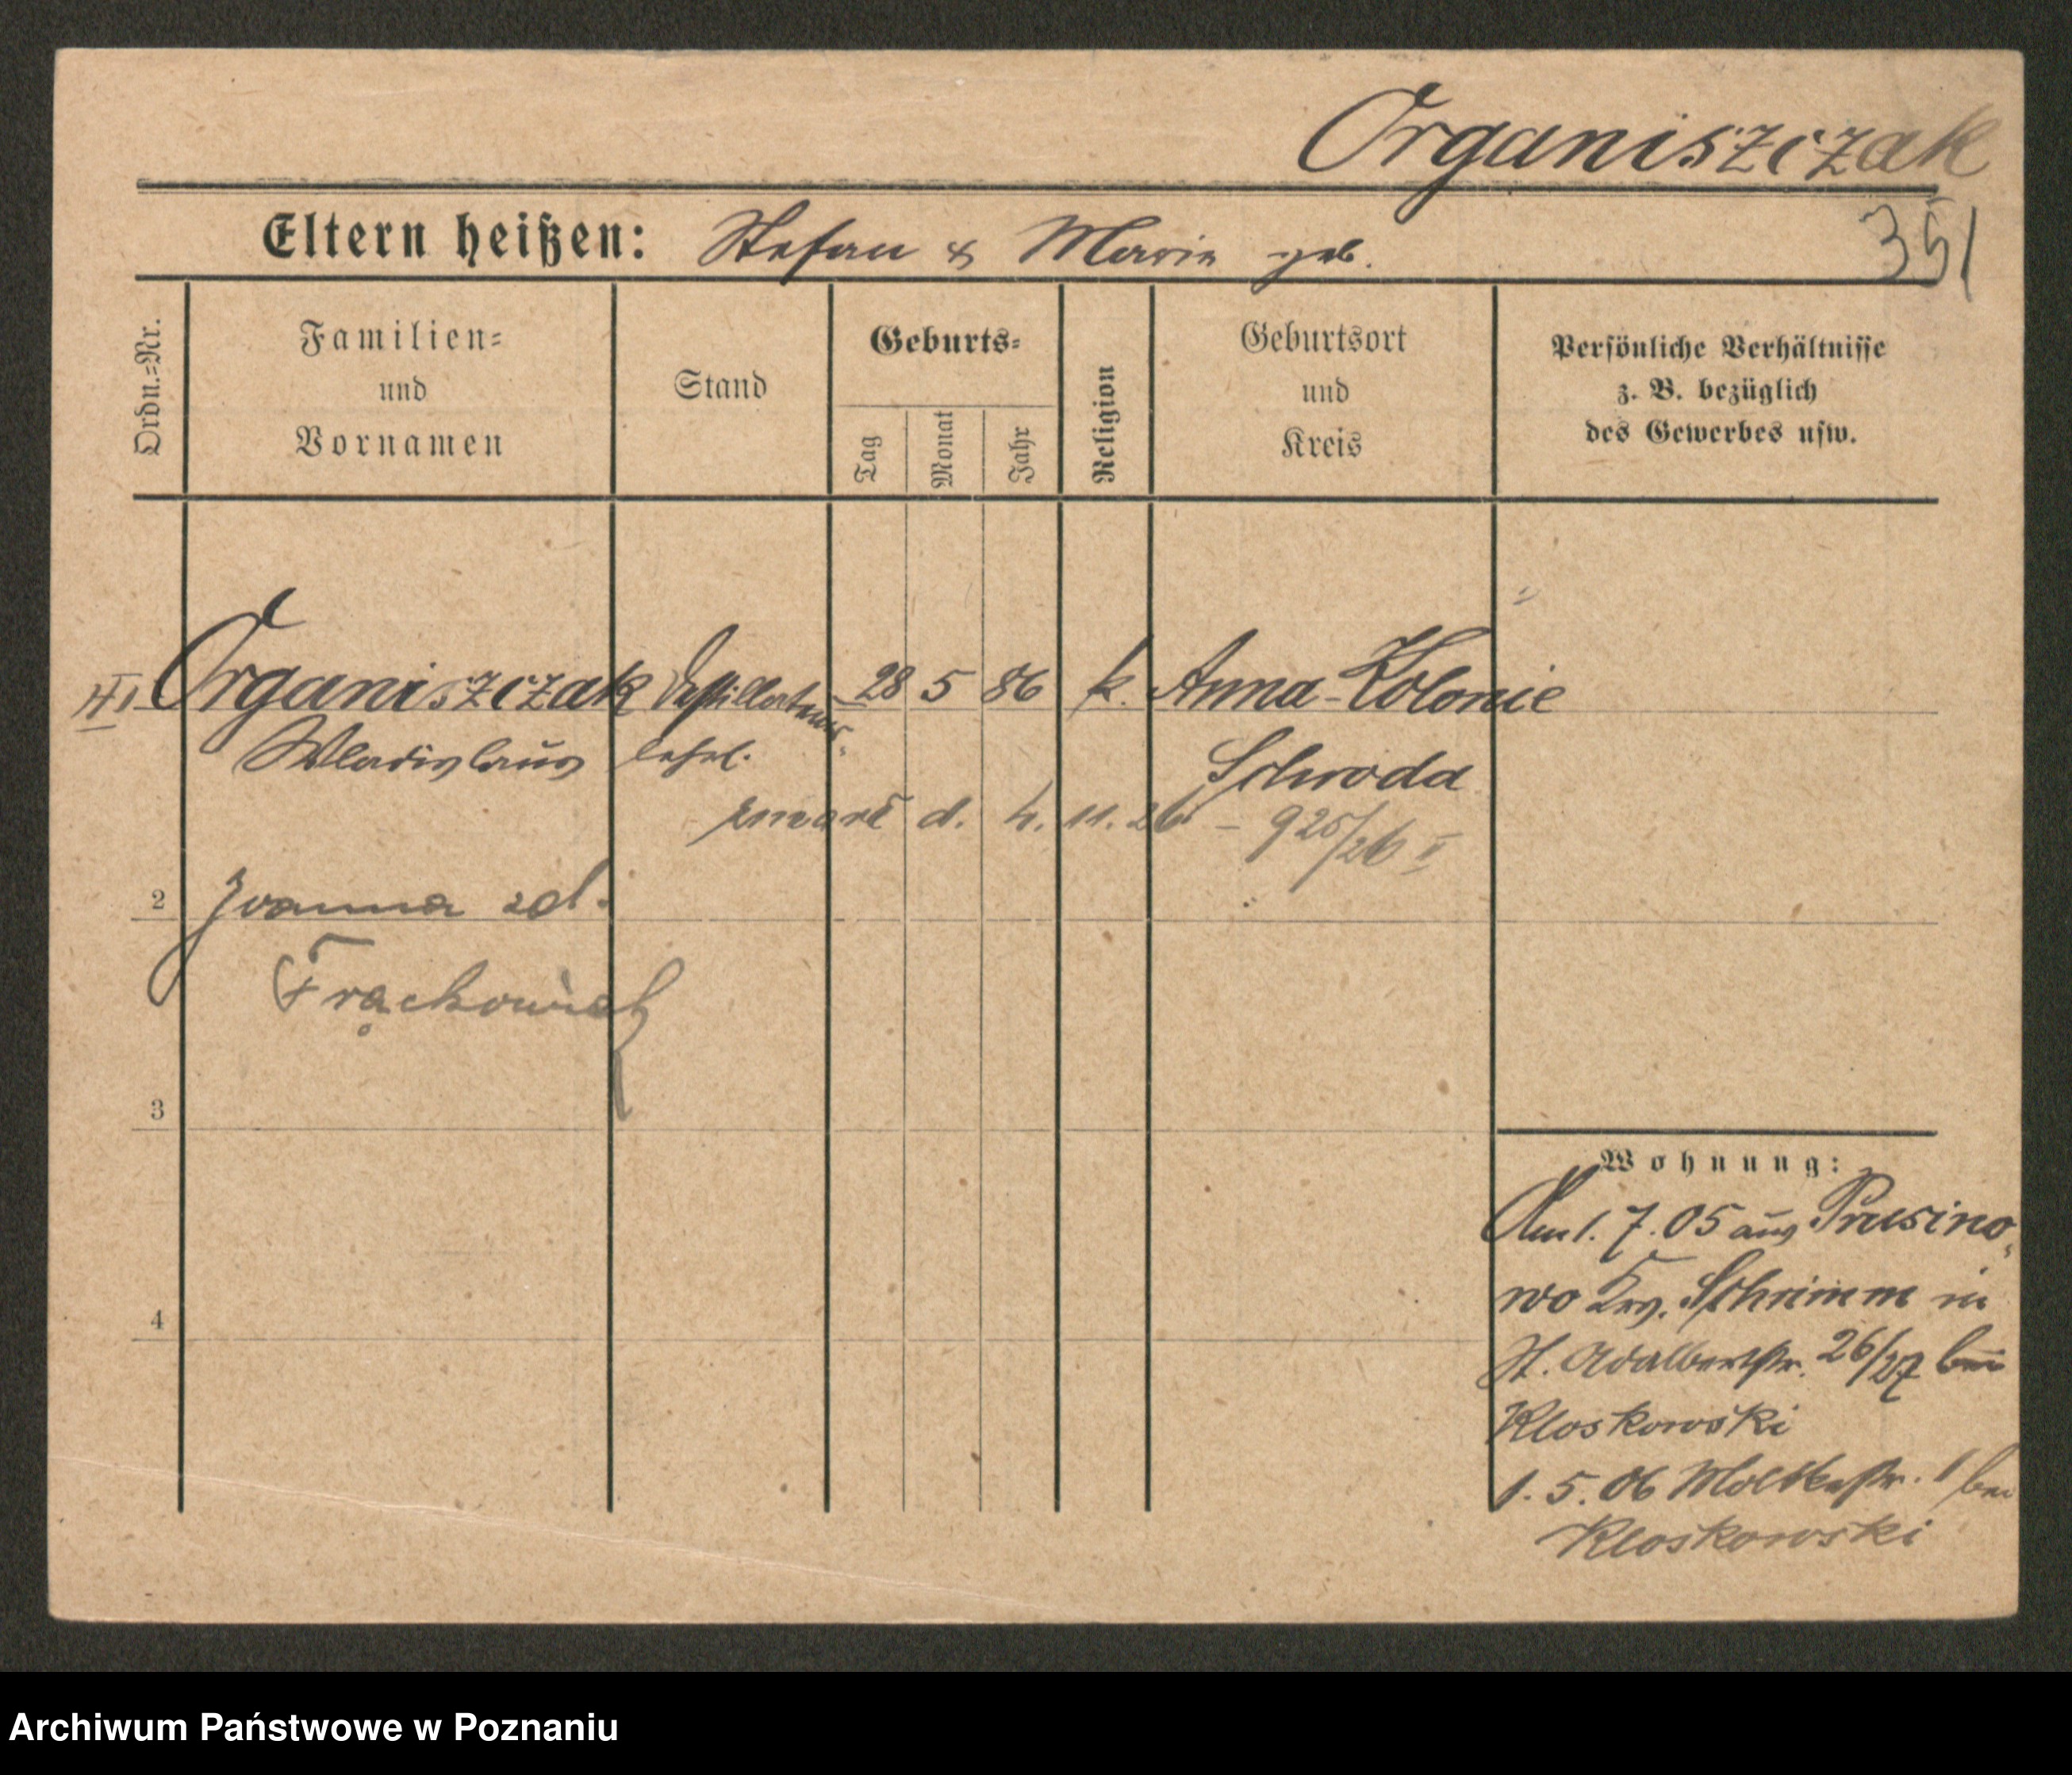 Organiszczak
Eltern heißen: Stefan & Marie geb.
351
Ordn.=Nr.
Familien=
und
Vornamen
Stand
Geburts=
Tag
Monat
Jahr
Religion
Geburtsort
und
Kreis
Persönliche Verhältnisse
z. B. bezüglich
des Gewerbes usw.
Organiszczak Destillateur- 28 5 86 k. Anna-Kolonie
Wladislaus lehrl. Schroda
zmarł d. 4. 11. 26 - 925/26 II
2 Joanna zd.
Frąckowiak
3
4
Wohnung:
Am 1. 7. 05 aus Prusino-
wo Krs. Schrimm in
St. Adalbertstr. 26/27 bei
Kloskowski
1. 5. 06 Moltkestr. 1 bei
Kloskowski
Archiwum Państwowe w Poznaniu